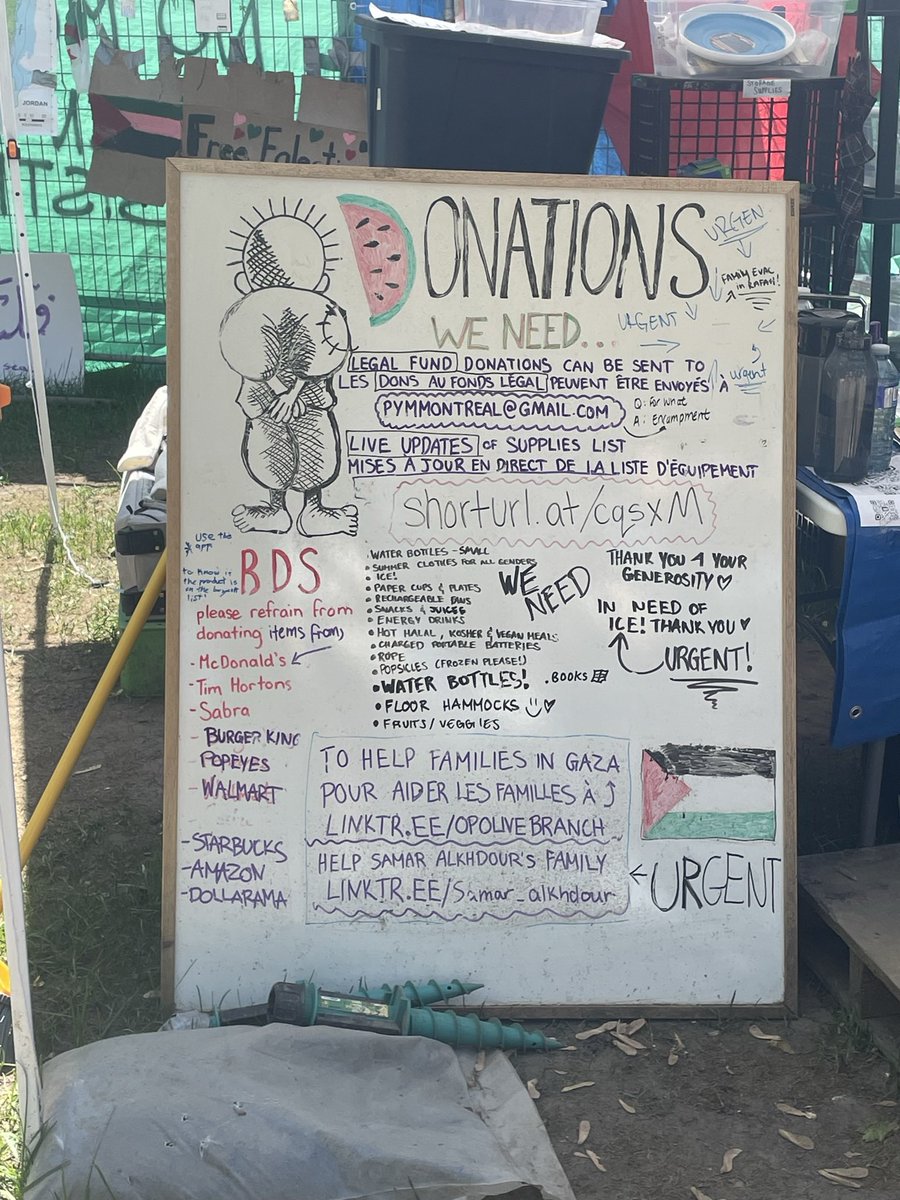 JORDAN
Free Falesti
STORAGE
SUPPLIES
DONATIONS
URGEN
FAMILY EVAC
in RAFAH!
URGENT
WE NEED...
LEGAL FUND DONATIONS CAN BE SENT TO
LES DONS AU FONDS LÉGAL PEUVENT ÊTRE ENVOYÉS À
urgent
PYMMONTREAL@GMAIL.COM
Q: For what
A: Encampment
LIVE UPDATES OF SUPPLIES LIST
MISES À JOUR EN DIRECT DE LA LISTE D'ÉQUIPEMENT
shorturl.at/cqsxM
use the
app
to know if
the product is
on the boycott
list!
BDS
please refrain from
donating items from
- McDonald's
- Tim Hortons
- Sabra
- BURGER KING
POPEYES
- WALMART
- STARBUCKS
- AMAZON
- DOLLARAMA
WE
NEED
• WATER BOTTLES - SMALL
• SUMMER CLOTHES FOR ALL GENDERS
• ICE!
• PAPER CUPS & PLATES
• RECHARGEABLE FANS
• SNACKS & JUICES
• ENERGY DRINKS
• HOT HALAL, KOSHER & VEGAN MEALS
• CHARGED PORTABLE BATTERIES
• ROPE
• POPSICLES (FROZEN PLEASE!)
• WATER BOTTLES!
. BOOKS
• FLOOR HAMMOCKS
• FRUITS/VEGGIES
THANK YOU 4 YOUR
GENEROSITY ♡
IN NEED OF
ICE! THANK YOU ♥
URGENT!
TO HELP FAMILIES IN GAZA
POUR AIDER LES FAMILLES À
LINKTR.EE/OPOLIVEBRANCH
HELP SAMAR ALKHDOUR'S FAMILY
LINKTR.EE/Samar_alkhdour
URGENT